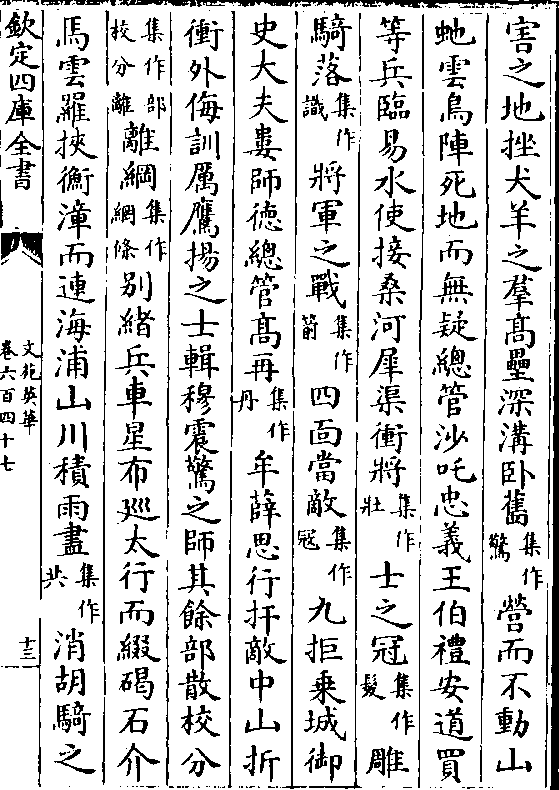 害之地挫犬羊之羣髙壘深溝卧舊集作驚營而不動山
虵雲鳥陣死地而無疑總管沙吒忠義王伯禮安道買
等兵臨易水使接桑河犀渠衝將集作壯士之冠集作髮雕
騎落集作識將軍之戰集作箭四面當敵集作冦九拒乗城御
史大夫婁師徳總管髙再集作丹牟薛思行扞敵中山折
衝外侮訓厲鷹揚之士輯穆震驚之師其餘部散校分
集作部校分離離綱集作網絛别緒兵車星布廵太行而綴碣石介
馬雲羅挾衡漳而連海浦山川積雨盡集作共消胡騎之
欽定四庫全書
文苑英華
卷六百四十七
十三